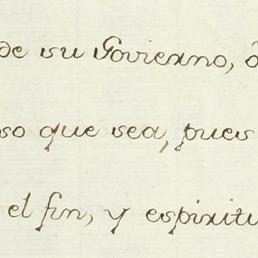 de su Govierno, ó
so que sea, pues
el fin, y espiritu